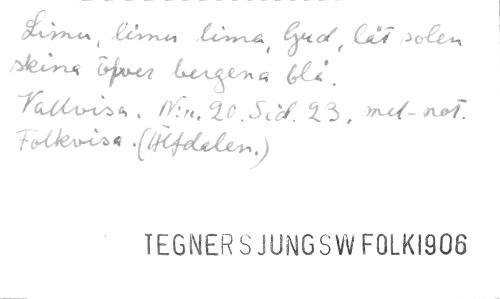 Limu, limu lima, Gud, låt solen
skina öpver bergena blå.
Vallvisa. N:o. 20. Sid. 23, mel-not.
Folkvisa. (Älfdalen.)
TEGNERSJUNGSWFOLK1906